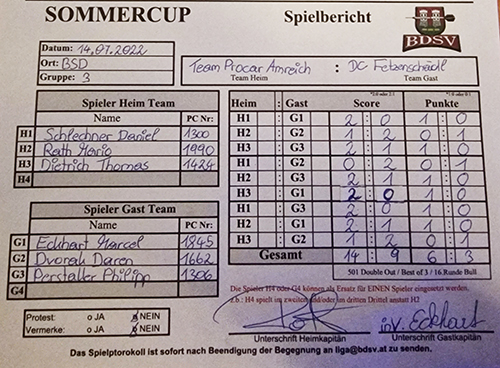 SOMMERCUP Spielbericht
BDSV
Datum: 14.07.2022
Ort: BSD
Gruppe: 3
Team Procar Amreich : DC Fetzenschädl
Team Heim Team Gast
Spieler Heim Team
Name PC Nr:
H1 Schlechner Daniel 1300
H2 Rath Mario 1990
H3 Dietrich Thomas 1424
H4
Spieler Gast Team
Name PC Nr:
G1 Eckhart Marcel 1845
G2 Dvorak Daren 1662
G3 Perstaller Philipp 1306
G4
Heim : Gast Score Punkte
H1 : G1 2 : 0 1 : 0
H2 : G2 1 : 2 0 : 1
H3 : G3 2 : 1 1 : 0
H1 : G2 0 : 2 0 : 1
H2 : G3 2 : 1 1 : 0
H3 : G1 2 : 0 1 : 0
H1 : G3 2 : 0 1 : 0
H2 : G1 2 : 1 1 : 0
H3 : G2 1 : 2 0 : 1
Gesamt 14 : 9 6 : 3
501 Double Out / Best of 3 / 16 Runde Bull
Die Spieler H4 oder G4 können als Ersatz für EINEN Spieler eingesetzt werden.
z.b.: H4 spielt im zweiten und/oder im dritten Drittel anstatt H2
Protest: o JA o NEIN
Vermerke: o JA o NEIN
i.V. Eckhart
Unterschrift Heimkapitän Unterschrift Gastkapitän
Das Spielptorokoll ist sofort nach Beendigung der Begegnung an liga@bdsv.at zu senden.